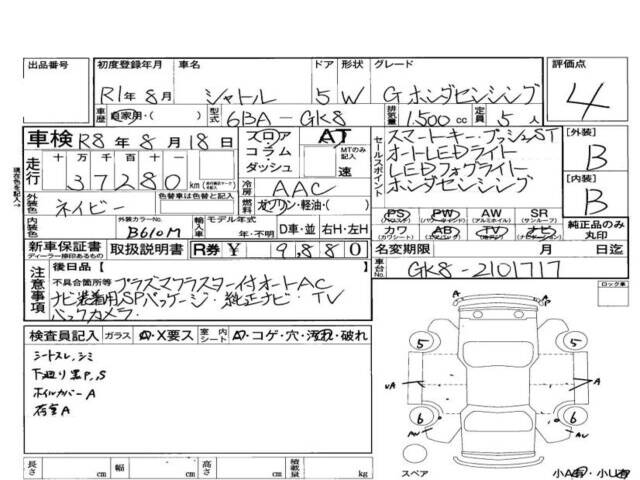 出品番号 初度登録年月 車名 ドア 形状 グレード 評価点
R1年8月 シャトル 5 W G ホンダセンシング 4
車歴 自家用・( ) 型式 6BA-GK8 排気量 1500cc 定員 5人
車検 R8年8月18日 フロア コラム ダッシュ AT MTのみ記入 速
セールスポイント スマートキー・プッシュST
オートLEDライト
LEDフォグライト
ホンダセンシング
[外装] B
[内装] B
走行 十万 万 千 百 十 一
37280 km
現在色を記入→
冷房 AAC
外装色 ネイビー 色替車は色替と記入 燃料 ガソリン・軽油・( )
PS (パワステ) PW (パワーウインド) AW (アルミホイル) SR (サンルーフ)
カワ (カワシート) AB (エアバッグ) TV ナビ
純正品のみ丸印
内装色 外装カラーNo. B610M 輸入車 モデル年式 年・不明 D車・並 右H・左H
新車保証書 ディーラー捺印あるもの 取扱説明書 R券 ¥ 9,880 名変期限 月 日迄
注意事項 後日品【 】 車台No. GK8-2101717
不具合箇所等 プラズマクラスター付オートAC
ナビ装着用SPパッケージ・純正ナビ・TV
バックカメラ
ロック車
検査員記入 ガラス A・X要ス 室内 シート A・コゲ・穴・汚れ・破れ
シートスレ,シミ
下廻り黒P,S
ホイルカバーA
荷室A
A
5 5
A
6 6
スペア 小A有・小U有
長さ cm 幅 cm 高さ cm 積載量 kg